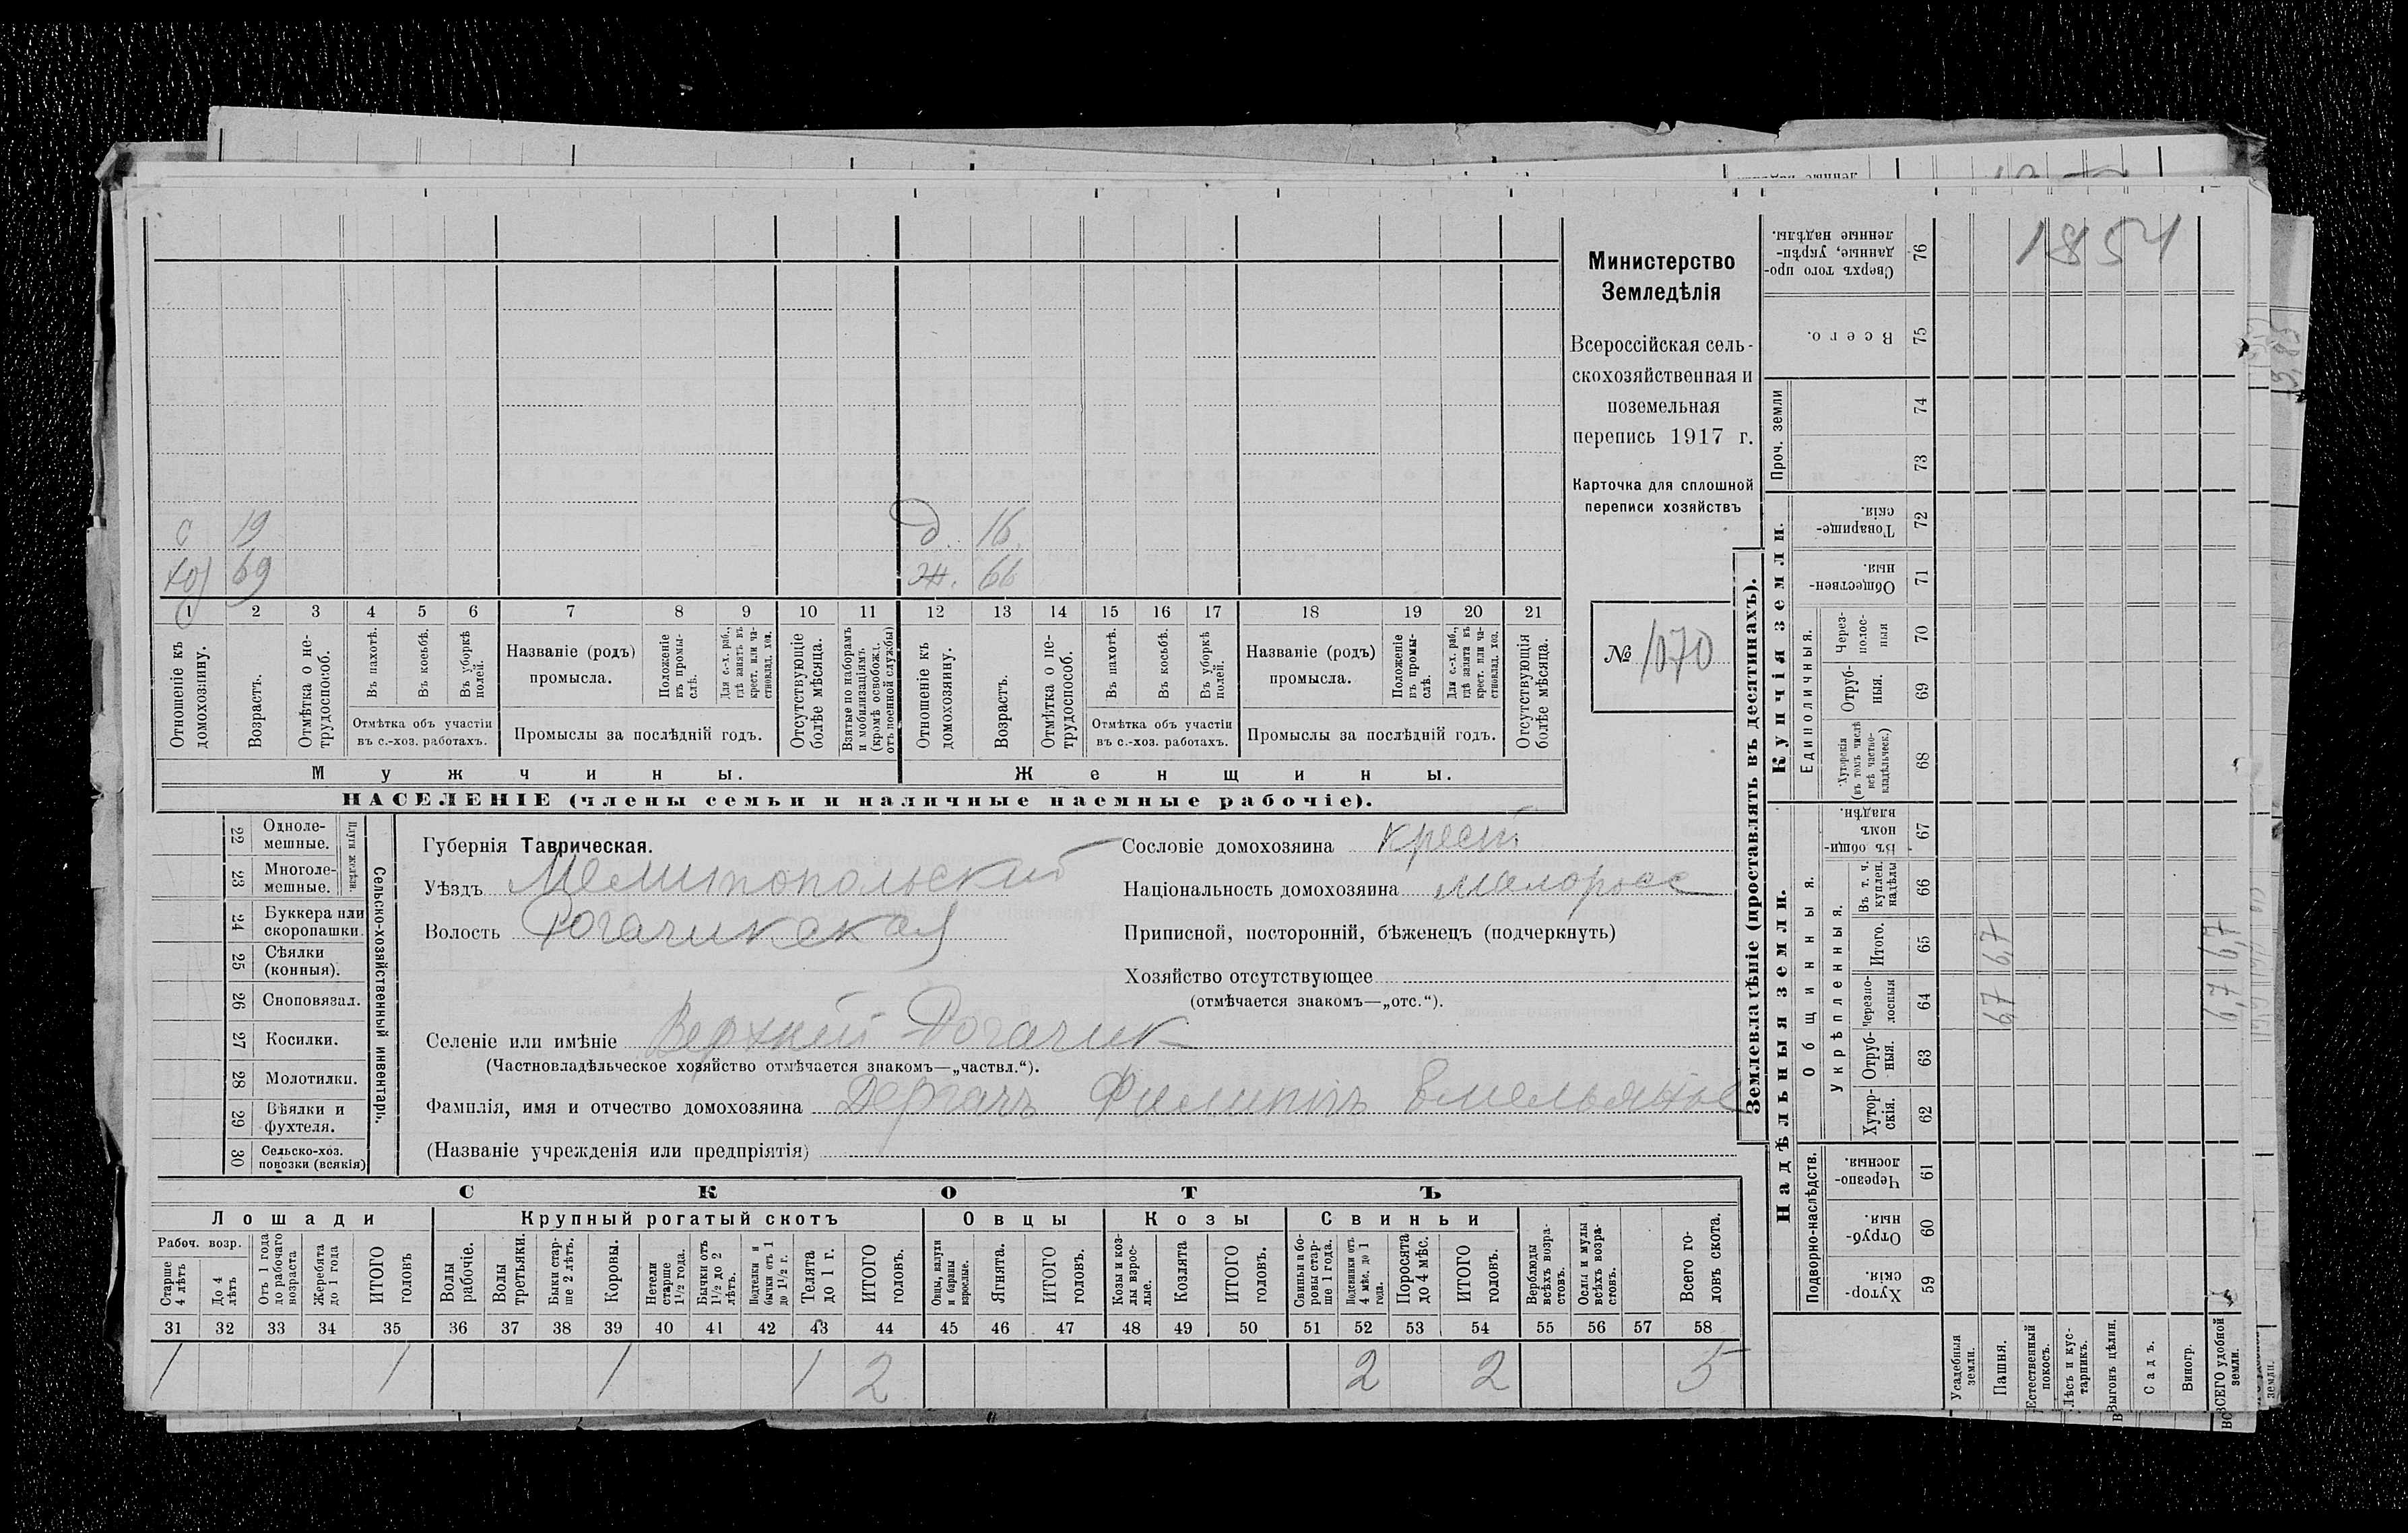 Министерство
Земледѣлія
Всероссійская сель-
скохозяйственная и
поземельная
перепись 1917 г.
Карточка для сплошной
переписи хозяйствъ
№ 1070
с 19 д. 16
хоз 69 ж. 66
1 2 3 4 5 6 7 8 9 10 11 12 13 14 15 16 17 18 19 20 21
Отношеніе къ домохозяину.
Возрастъ.
Отмѣтка о не-трудоспособ.
Въ пахотѣ.
Въ косьбѣ.
Въ уборкѣ полей.
Отмѣтка объ участіи
въ с.-хоз. работахъ.
Названіе (родъ)
промысла.
Положеніе въ промы-слѣ.
Для с.-х. раб., гдѣ занятъ въ крест. или ча-стновлад. хоз.
Промыслы за послѣдній годъ.
Отсутствующіе болѣе мѣсяца.
Взятые по наборамъ и мобилизаціямъ (кромѣ освобожд. отъ военной службы)
Отношеніе къ домохозяину.
Возрастъ.
Отмѣтка о не-трудоспособ.
Въ пахотѣ.
Въ косьбѣ.
Въ уборкѣ полей.
Отмѣтка объ участіи
въ с.-хоз. работахъ.
Названіе (родъ)
промысла.
Положеніе въ промы-слѣ.
Для с.-х. раб., гдѣ занята въ крест. или ча-стновлад. хоз.
Промыслы за послѣдній годъ.
Отсутствующія болѣе мѣсяца.
Мужчины. Женщины.
НАСЕЛЕНІЕ (члены семьи и наличные наемные рабочіе).
22 Одноле-мешные.
23 Многоле-мешные.
Плуги желѣзн.
24 Буккера или скоропашки.
25 Сѣялки (конныя).
26 Сноповязал.
27 Косилки.
28 Молотилки.
29 Вѣялки и фухтеля.
30 Сельско-хоз. повозки (всякія)
Сельско-хозяйственный инвентарь.
Губернія Таврическая.
Уѣздъ Мелитопольский
Волость Рогачикская
Сословіе домохозяина крест
Національность домохозяина малоросс
Приписной, посторонній, бѣженецъ (подчеркнуть)
Хозяйство отсутствующее
(отмѣчается знакомъ—„отс.“).
Селеніе или имѣніе Верхний Рогачик
(Частновладѣльческое хозяйство отмѣчается знакомъ—„частвл.“).
Фамилія, имя и отчество домохозяина Дергачъ Филиппъ Емельянов
(Названіе учрежденія или предпріятія)
СКОТЪ
Лошади Крупный рогатый скотъ Овцы Козы Свиньи
Рабоч. возр.
Старше 4 лѣтъ
До 4 лѣтъ
Отъ 1 года до рабочаго возраста
Жеребята до 1 года
ИТОГО головъ
Волы рабочіе.
Волы третьяки.
Быки стар-ше 2 лѣтъ.
Коровы.
Нетели старше 1½ года.
Бычки отъ 1½ до 2 лѣтъ.
Подтелки и бычки отъ 1 до 1½ г.
Телята до 1 г.
ИТОГО головъ.
Овцы, валухи и бараны взрослые.
Ягнята.
ИТОГО головъ.
Козы и коз-лы взрос-лые.
Козлята
ИТОГО головъ.
Свиньи и бо-ровы стар-ше 1 года.
Подсвинки отъ 4 мѣс. до 1 года.
Поросята до 4 мѣс.
ИТОГО головъ.
Верблюды всѣхъ возра-стовъ.
Ослы и мулы всѣхъ возра-стовъ.
Всего го-ловъ скота.
31 32 33 34 35 36 37 38 39 40 41 42 43 44 45 46 47 48 49 50 51 52 53 54 55 56 57 58
1 1 1 1 2 2 2 5
Землевладѣніе (проставлять въ десятинахъ).
1854
76 Сверхъ того про-данные, укрѣп-ленные надѣлы.
75 Всего.
Проч. земли
74
73
Купчія земли.
72 Товарище-скія.
71 Обществен-ныя.
Единоличныя.
70 Через-полос-ныя
69 Отруб-ныя.
68 Хуторскія (въ томъ числѣ всѣ частно-владѣльческ.)
Надѣльныя земли.
Общинныя.
67 Въ общин-номъ владѣн.
Укрѣпленныя.
66 Въ т. ч. куплен. надѣлы
65 Итого.
64 Черезпо-лосныя
63 Отруб-ныя.
62 Хутор-скія.
Подворно-наслѣдств.
61 Черезпо-лосныя.
60 Отруб-ныя.
59 Хутор-скія.
6,7 6,7
6,7 6,7
Усадебныя земли.
Пашня.
Естественный покосъ.
Лѣсъ и кус-тарникъ.
Выгонъ цѣлин.
Садъ.
Виногр.
ВСЕГО удобной земли.